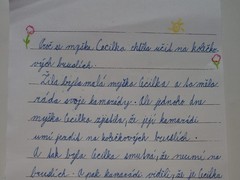 Proč si myška Cecilka chtěla učit na kolečko-
vých bruslích.
Žila byla malá myška Cecilka a ta měla
ráda svoje kamarády. Ale jednoho dne
myška Cecilka zjistila, že její kamarádi
umí jezdit na kolečkových bruslích.
A tak byla Cecilka smutná, že neumí na
bruslích. A pak kamarádi viděli, že je Cecilka